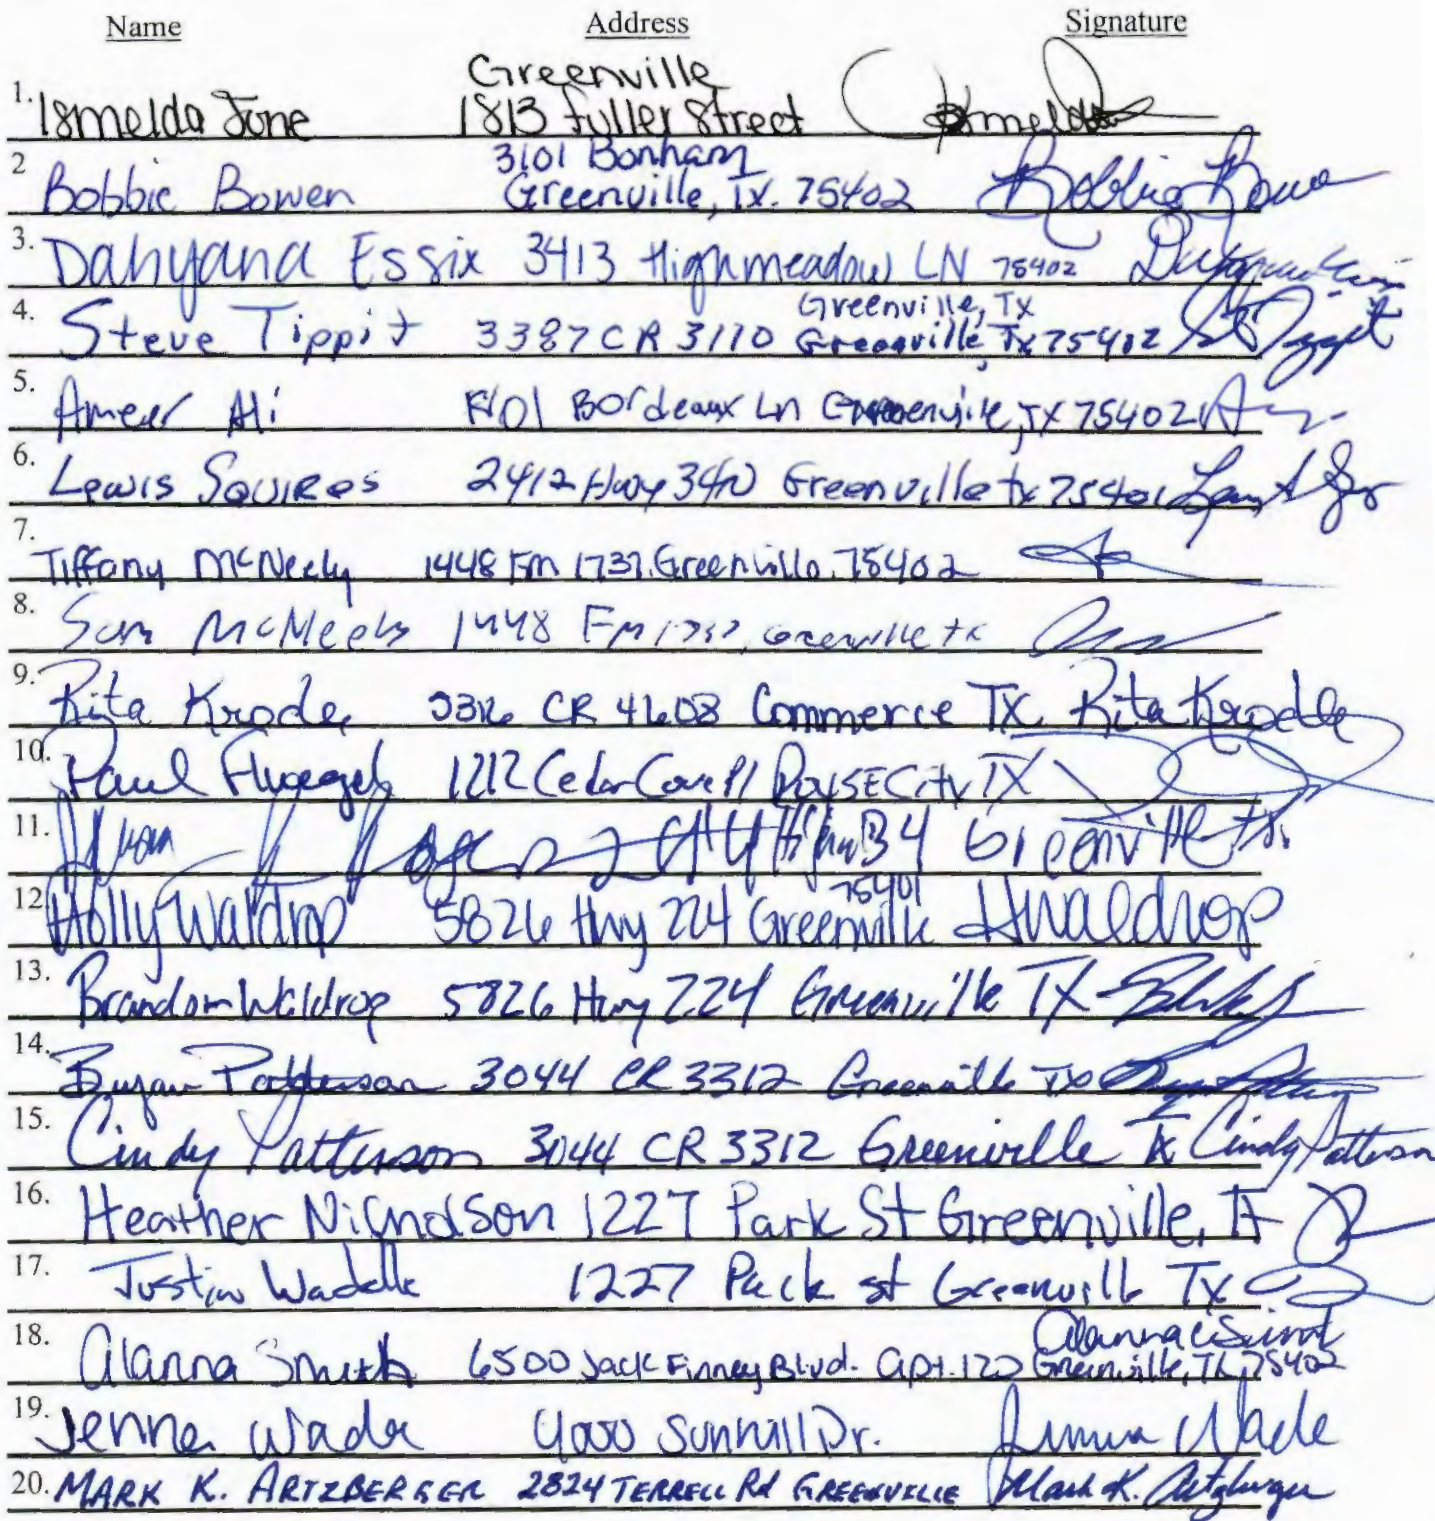 Name Address Signature
Greenville
1. Ismelda June 1813 Fuller Street Ismelda
3101 Bonham
2 Bobbie Bowen Greenville, Tx. 75402 Bobbie Bowen
3. Dahyana Essix 3413 Highmeadow LN 75402
Greenville, Tx
4. Steve Tippit 3387 CR 3110 Greenville, Tx 75402 St Tippit
5. Ameer Ali Bordeaux Ln Greenville, TX 75402
6. Lewis Squires 2412 Hwy Greenville tx 75401
7. Tiffany McNeely 1448 Fm 1737. Greenville. 75402
8. Sam McNeely 1448 Fm 1737, Greenville tx
9. Rita Krodle CR 4608 Commerce TX Rita Krodle
10. Paul 1212 Cedar Cove Pl RoysE City TX
11. 34 Greenville tx.
75401
12. Holly Waldrop 5826 Hwy 224 Greenville HWaldrop
13. Brandon Waldrop 5826 Hwy 224 Greenville TX
14. Bryan Patterson 3044 CR 3312 Greenville TX Bryan Patterson
15. Cindy Patterson 3044 CR 3312 Greenville Tx Cindy Patterson
16. Heather Nicholson 1227 Park St Greenville, TX
17. Justin Waddle 1227 Park st Greenville Tx
18. Alanna Smith 6500 Jack Finney Blvd. apt. 122 Greenville, TX, 75402
19. Jenna Wade 4000 Sunhill Dr. Jenna Wade
20. MARK K. ARTZBERGER 2824 TERRELL Rd GREENVILLE Mark K. Artzberger